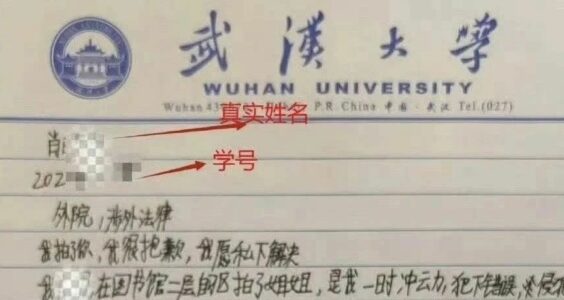 武漢大學
WUHAN UNIVERSITY
Wuhan 43 P.R. China 中国·武汉 Tel.(027)
真实姓名
肖
202
学号
外院,涉外法律
我拍了你,我很抱歉,我愿私下解决
我 ,在图书馆二层自习区拍了姐姐,是我一时冲动,犯下错误,